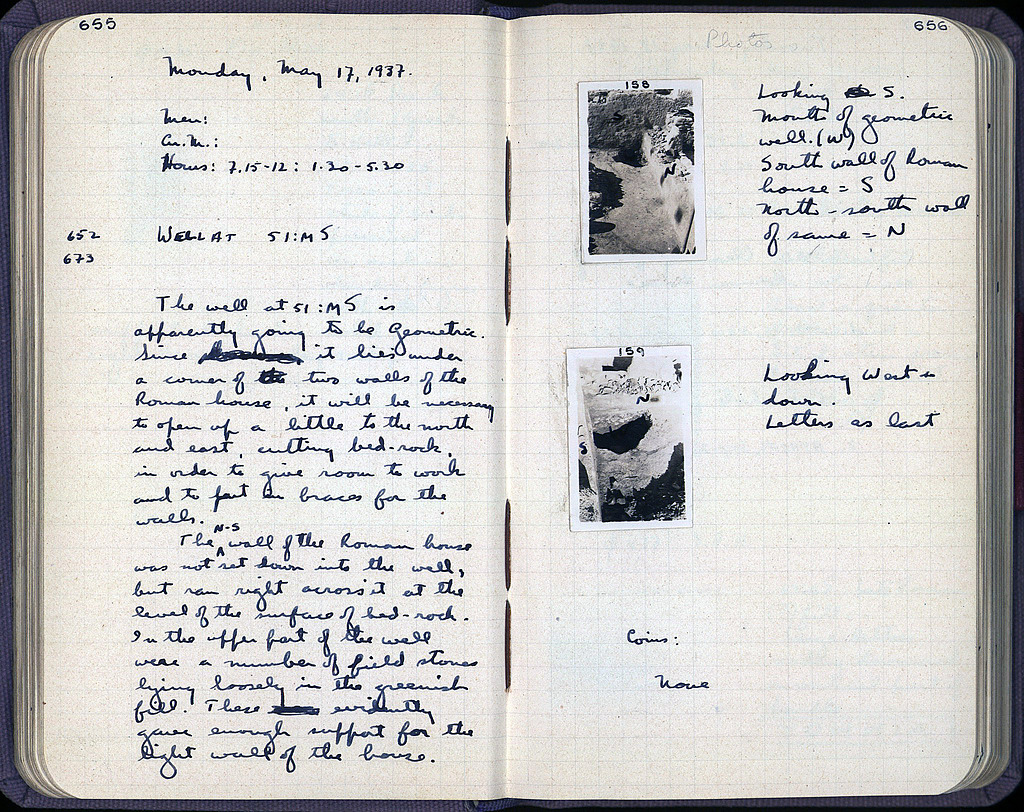 655
Monday, May 17, 1937.
Men:
Hours: 7.15-12: 1.30-5.30
652
673
WELL AT 51:MS
The well at 51:MS is
apparently going to be Geometric.
Since it lies under
a corner of two walls of the
Roman house, it will be necessary
to open up a little to the north
and east, cutting bed-rock,
in order to give room to work
and to put in braces for the
walls.
N-S
The wall of the Roman house
was not set down into the well,
but ran right across it at the
level of the surface of bed-rock.
In the upper part of the well
were a number of field stones
lying loosely in the greenish
fill. These evidently
gave enough support for the
light wall of the house.
656
Photos
158
S
N
Looking S.
Mouth of geometric
well. (W)
South wall of Roman
house = S
North-south wall
of same = N
159
N
S
Looking West +
down.
Letters as last
Coins:
None